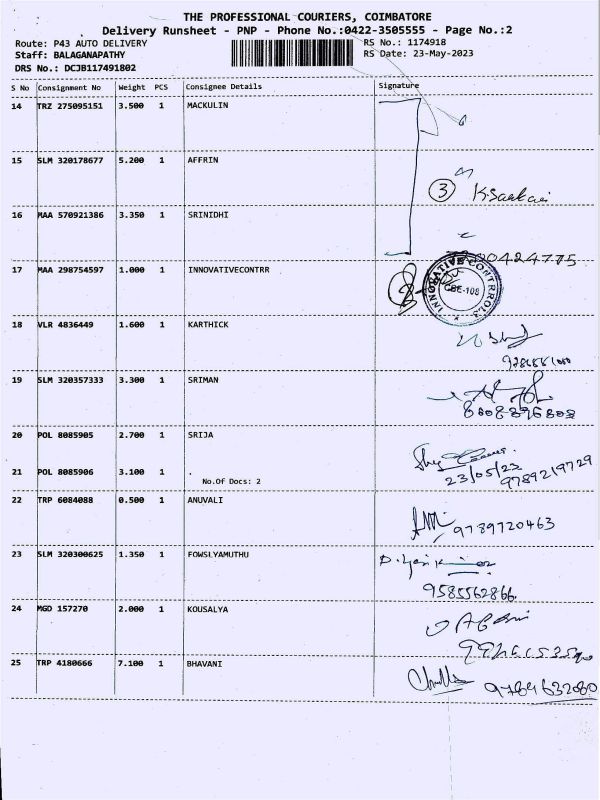 THE PROFESSIONAL COURIERS, COIMBATORE
Delivery Runsheet - PNP - Phone No.:0422-3505555 - Page No.:2
Route: P43 AUTO DELIVERY
RS No.: 1174918
Staff: BALAGANAPATHY
RS Date: 23-May-2023
DRS No.: DCJB117491802
S No Consignment No Weight PCS Consignee Details Signature
14 TRZ 275095151 3.500 1 MACKULIN
15 SLM 320178677 5.200 1 AFFRIN
3
16 MAA 570921386 3.350 1 SRINIDHI
17 MAA 298754597 1.000 1 INNOVATIVECONTRR
INNOVATIVE CONTROLS
CBE-108
18 VLR 4836449 1.600 1 KARTHICK
19 SLM 320357333 3.300 1 SRIMAN
20 POL 8085905 2.700 1 SRIJA
23/05/23
9789219729
21 POL 8085906 3.100 1 .
No.Of Docs: 2
22 TRP 6084088 0.500 1 ANUVALI
9789720463
23 SLM 320300625 1.350 1 FOWSLYAMUTHU
9585562866
24 MGD 157270 2.000 1 KOUSALYA
25 TRP 4180666 7.100 1 BHAVANI
9784632080